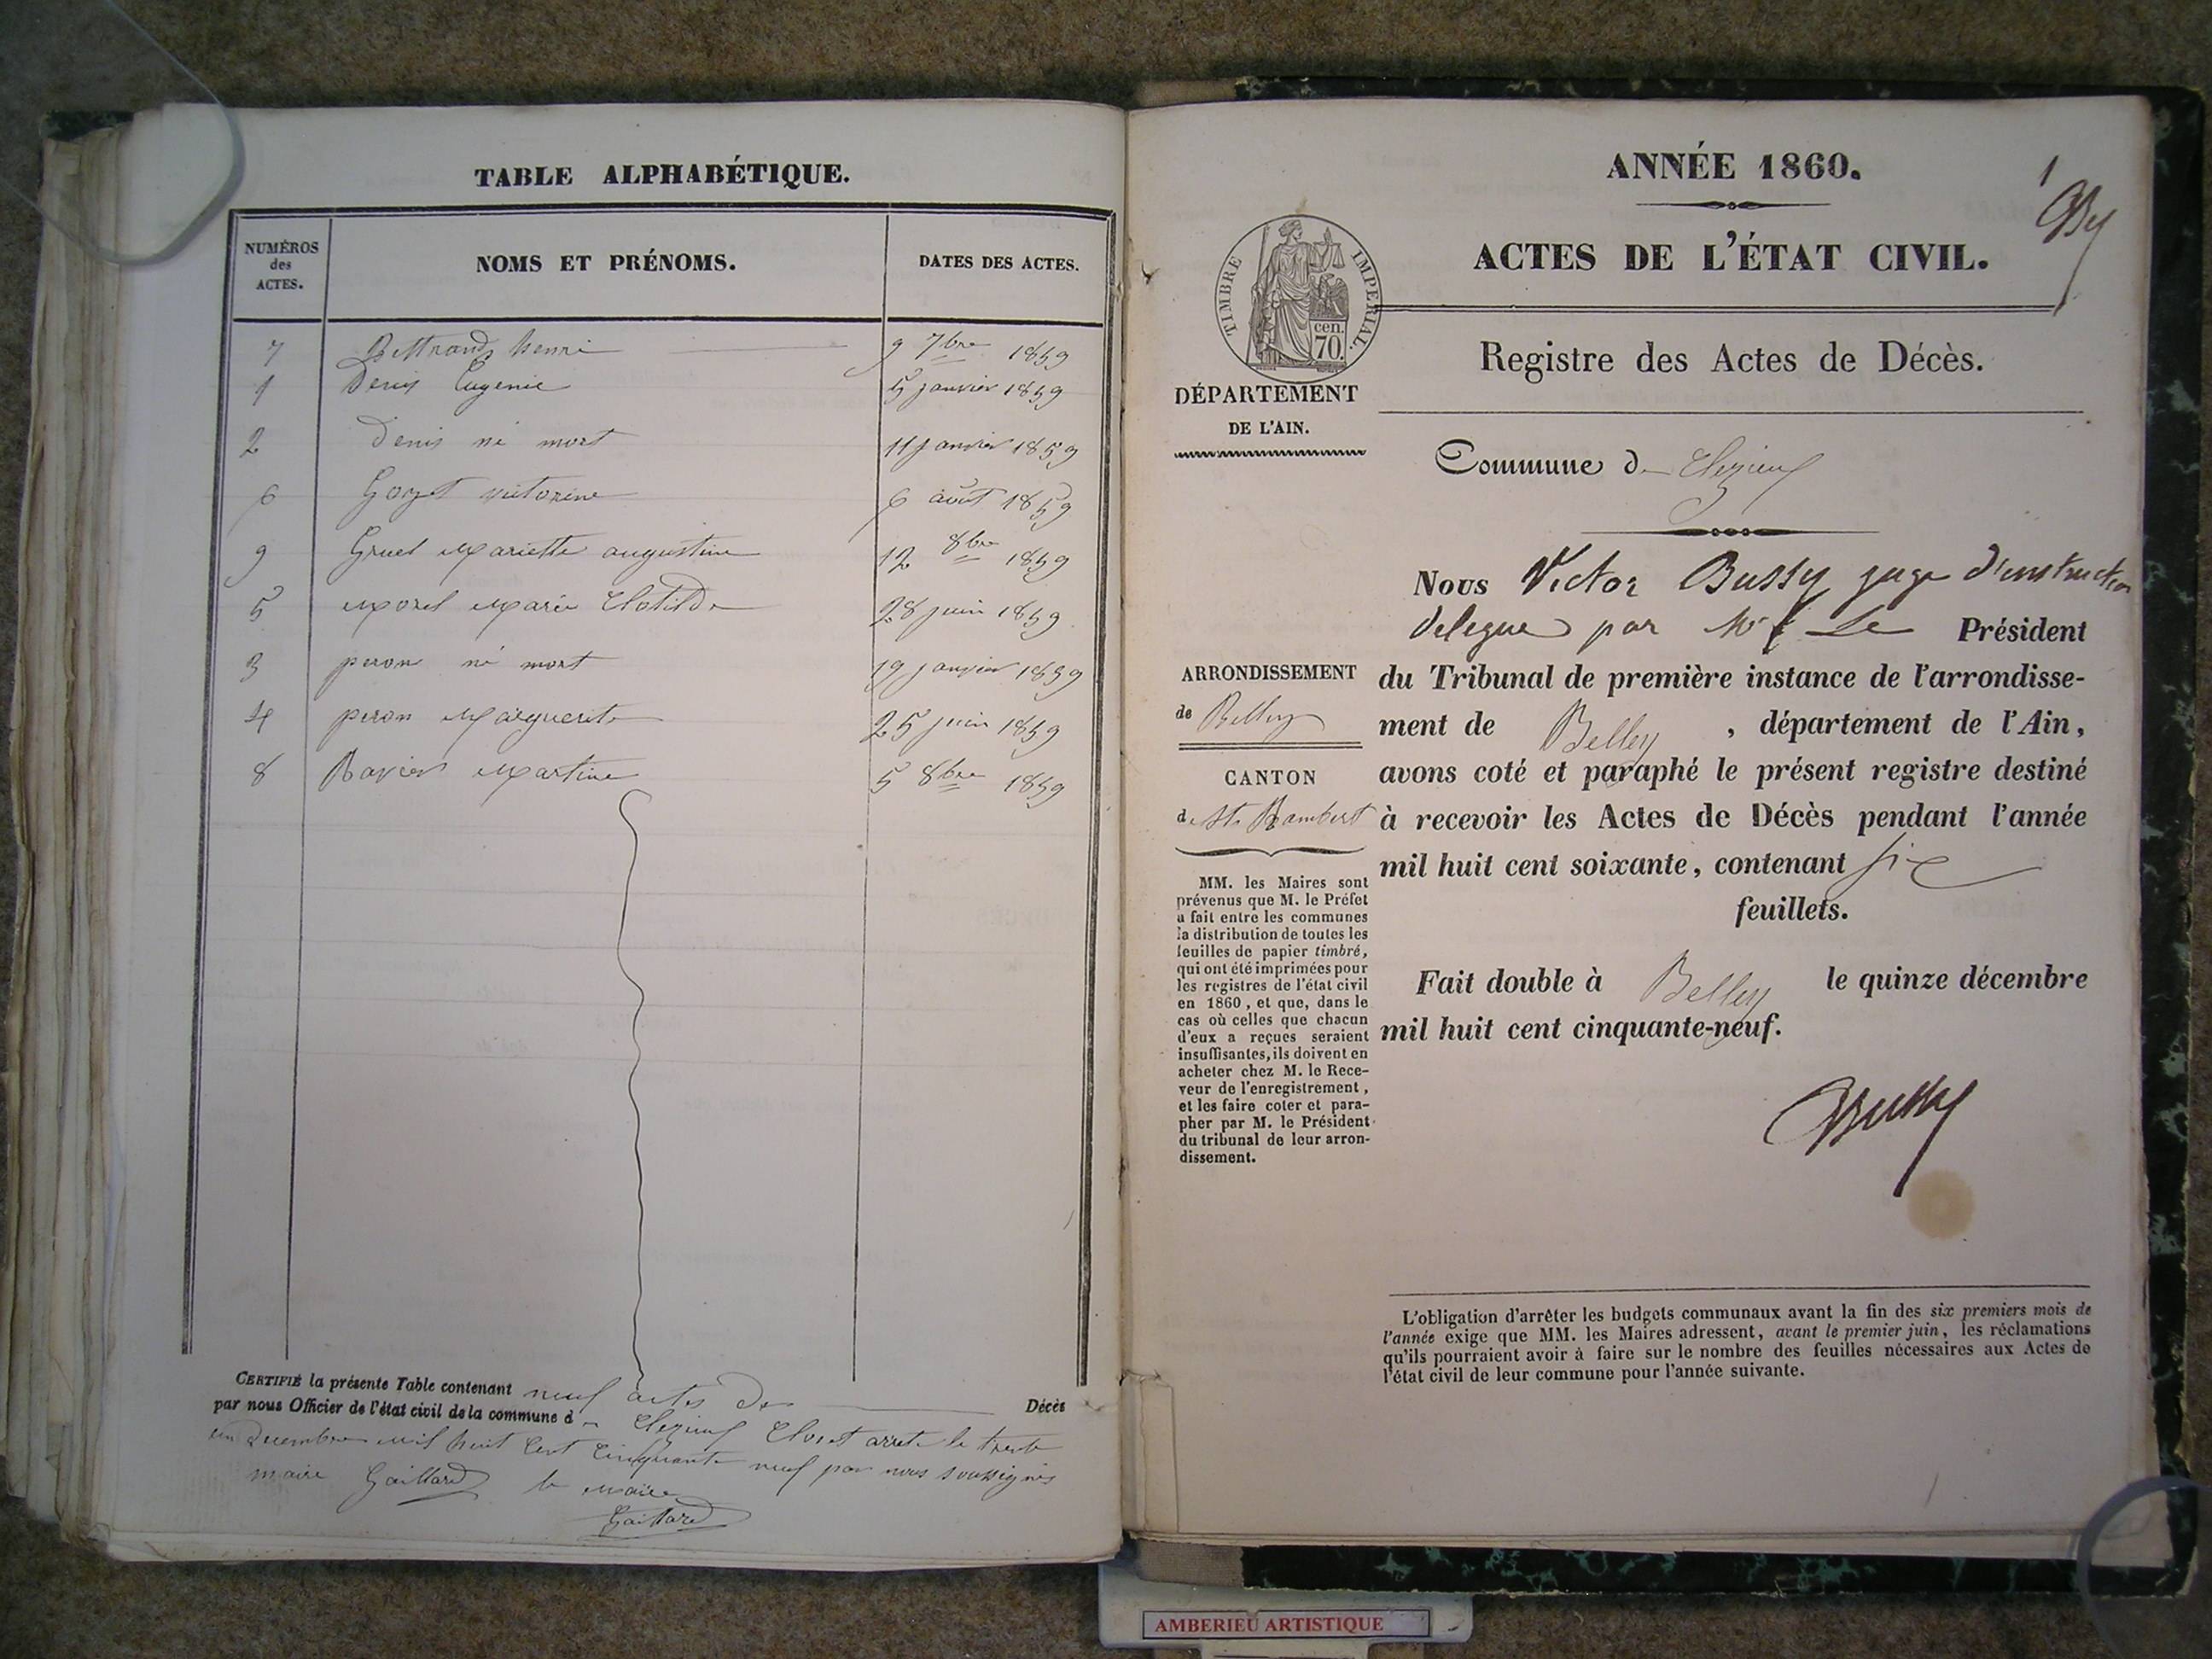 TABLE ALPHABÉTIQUE.
NUMÉROS des ACTES. NOMS ET PRÉNOMS. DATES DES ACTES.
7 henri 9 7bre 1859
1 Denis Eugenie 5 janvier 1859
2 Denis né mort 11 janvier 1859
6 victorine 6 août 1859
9 Gruel Mariette augustine 12 8bre 1859
5 Morel Marie Clotilde 28 juin 1859
3 peron né mort 19 janvier 1859
4 peron Marguerite 25 juin 1859
8 Ravier Martine 5 8bre 1859
CERTIFIÉ la présente Table contenant neuf actes de Décès
par nous Officier de l'état civil de la commune de Clezieu Clos et arreté le trente
un Decembre mil huit Cent Cinquante neuf par nous soussignés
maire Gaillard le maire
Gaillard
1
ANNÉE 1860.
ACTES DE L'ÉTAT CIVIL.
TIMBRE IMPÉRIAL.
cen.
70.
Registre des Actes de Décès.
DÉPARTEMENT
DE L'AIN.
Commune de Clezieu
Nous Victor Bussy juge d'instruction
delegue par Mr Le Président
du Tribunal de première instance de l'arrondisse-
ment de Belley , département de l'Ain,
avons coté et paraphé le présent registre destiné
à recevoir les Actes de Décès pendant l'année
mil huit cent soixante, contenant six
feuillets.
Fait double à Belley le quinze décembre
mil huit cent cinquante-neuf.
Bussy
ARRONDISSEMENT
de Belley
CANTON
de St Rambert
MM. les Maires sont
prévenus que M. le Préfet
a fait entre les communes
la distribution de toutes les
feuilles de papier timbré,
qui ont été imprimées pour
les registres de l'état civil
en 1860, et que, dans le
cas où celles que chacun
d'eux a reçues seraient
insuffisantes, ils doivent en
acheter chez M. le Rece-
veur de l'enregistrement,
et les faire coter et para-
pher par M. le Président
du tribunal de leur arron-
dissement.
L'obligation d'arrêter les budgets communaux avant la fin des six premiers mois de
l'année exige que MM. les Maires adressent, avant le premier juin, les réclamations
qu'ils pourraient avoir à faire sur le nombre des feuilles nécessaires aux Actes de
l'état civil de leur commune pour l'année suivante.
AMBERIEU ARTISTIQUE